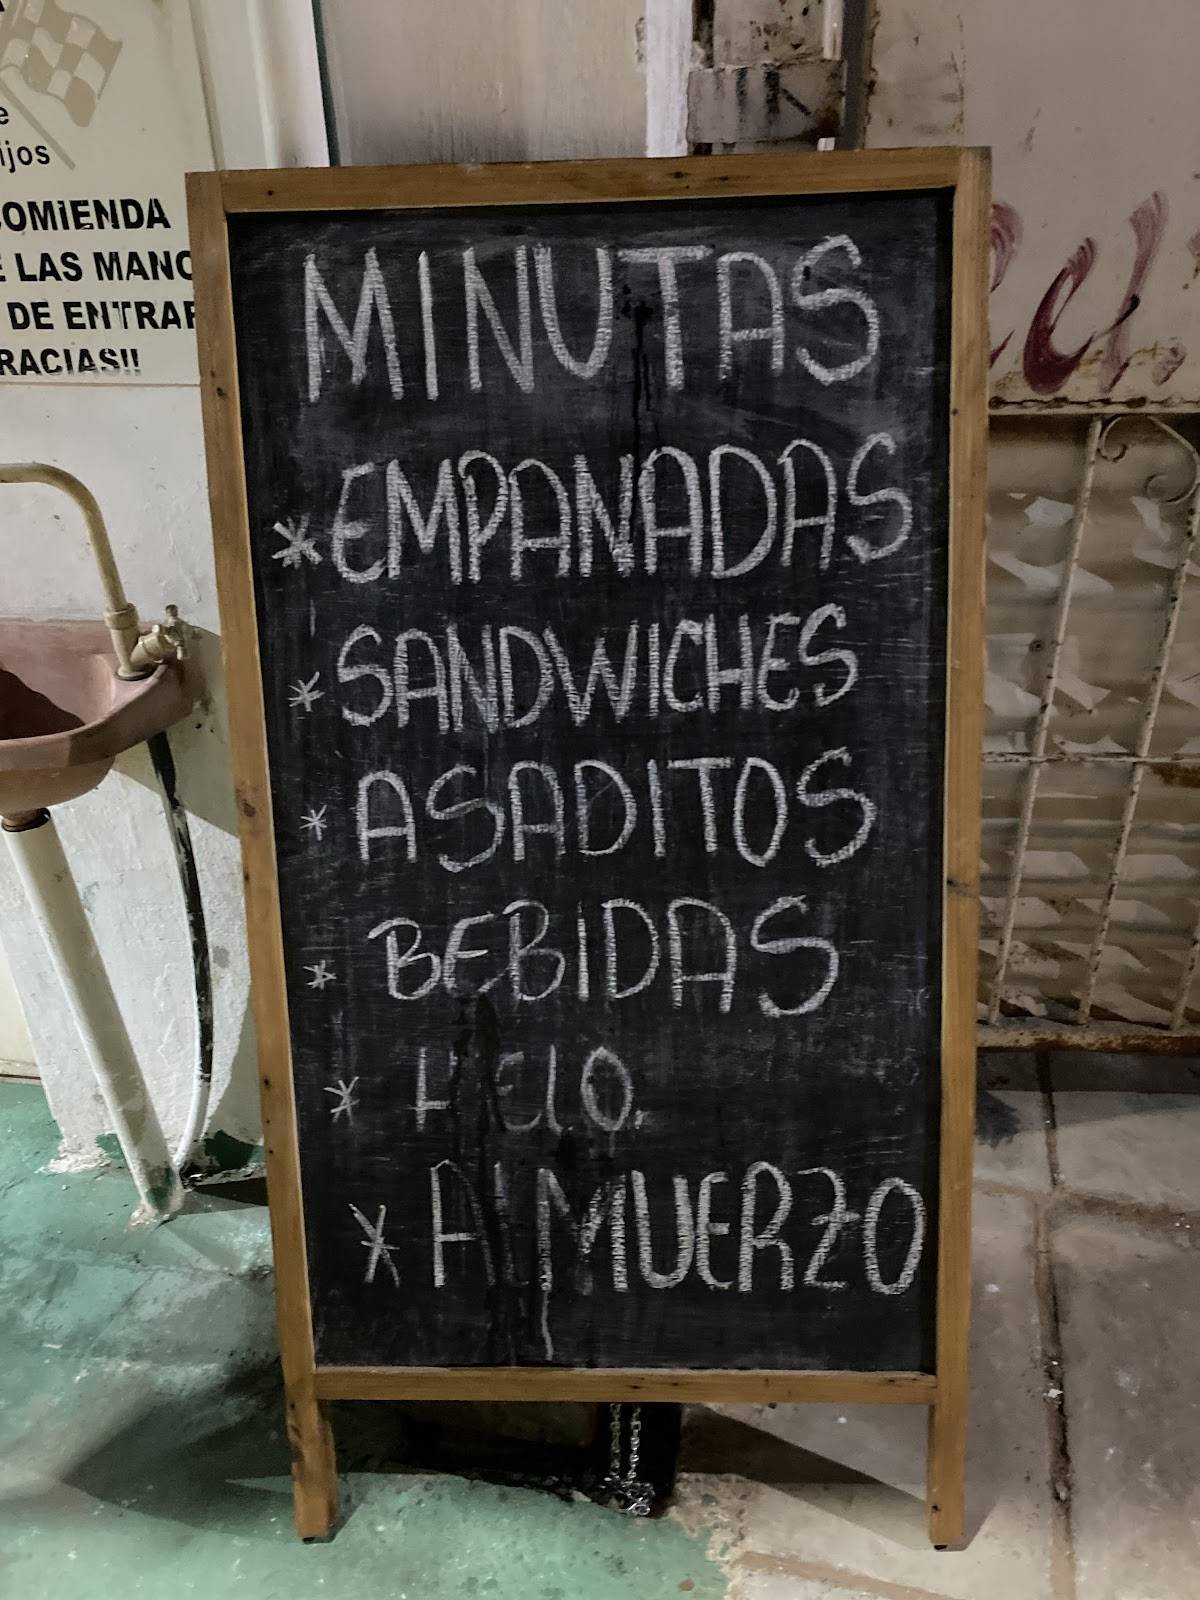 ijos
OMIENDA
E LAS MANO
DE ENTRAR
RACIAS!!
MINUTAS
* EMPANADAS
* SANDWICHES
* ASADITOS
* BEBIDAS
* HIELO.
* ALMUERZO